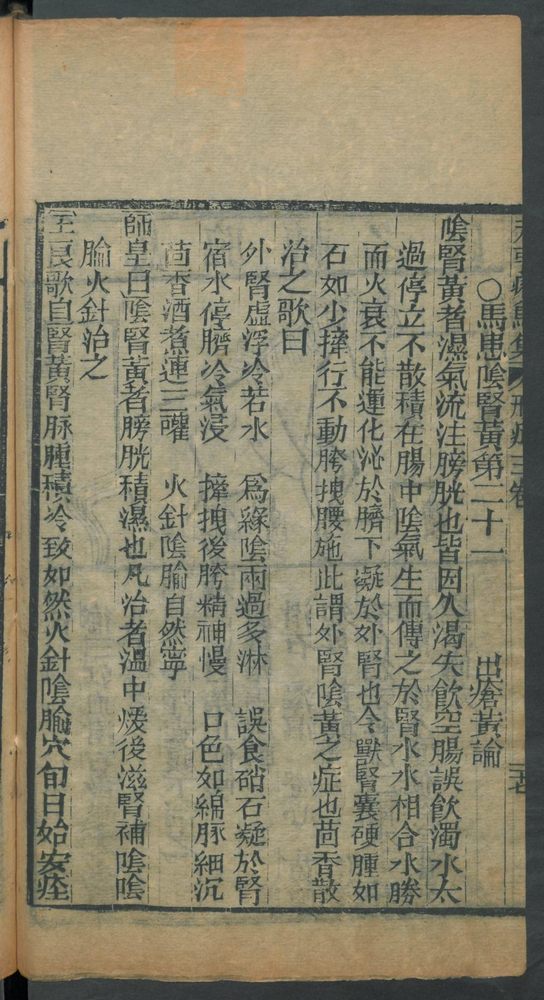 馬集
○馬患陰腎黃第二十一 出瘡黃論
陰腎黃者濕氣流注膀胱也皆因久渴失飲空腸誤飲濁水太
過停立不散積在腸中陰氣生而傳之於腎水水相合水勝
而火衰不能運化泌於臍下凝於外腎也令獸腎囊硬腫如
石如少擡行不動胯拽腰拖此謂外腎陰黃之症也茴香散
治之歌曰
外腎虛浮冷若水 為緣陰雨過多淋 誤食硝石凝於腎
宿水停臍冷氣浸 擡拽後胯精神慢 口色如綿脉細沉
茴香酒煮連三嚾 火針陰腧自然寧
師皇曰陰腎黃者膀胱積濕也凡治者溫中煖後滋腎補陰陰
腧火針治之
王良歌自腎黃腎脉腫積冷致如然火針陰腧穴旬日始安痊